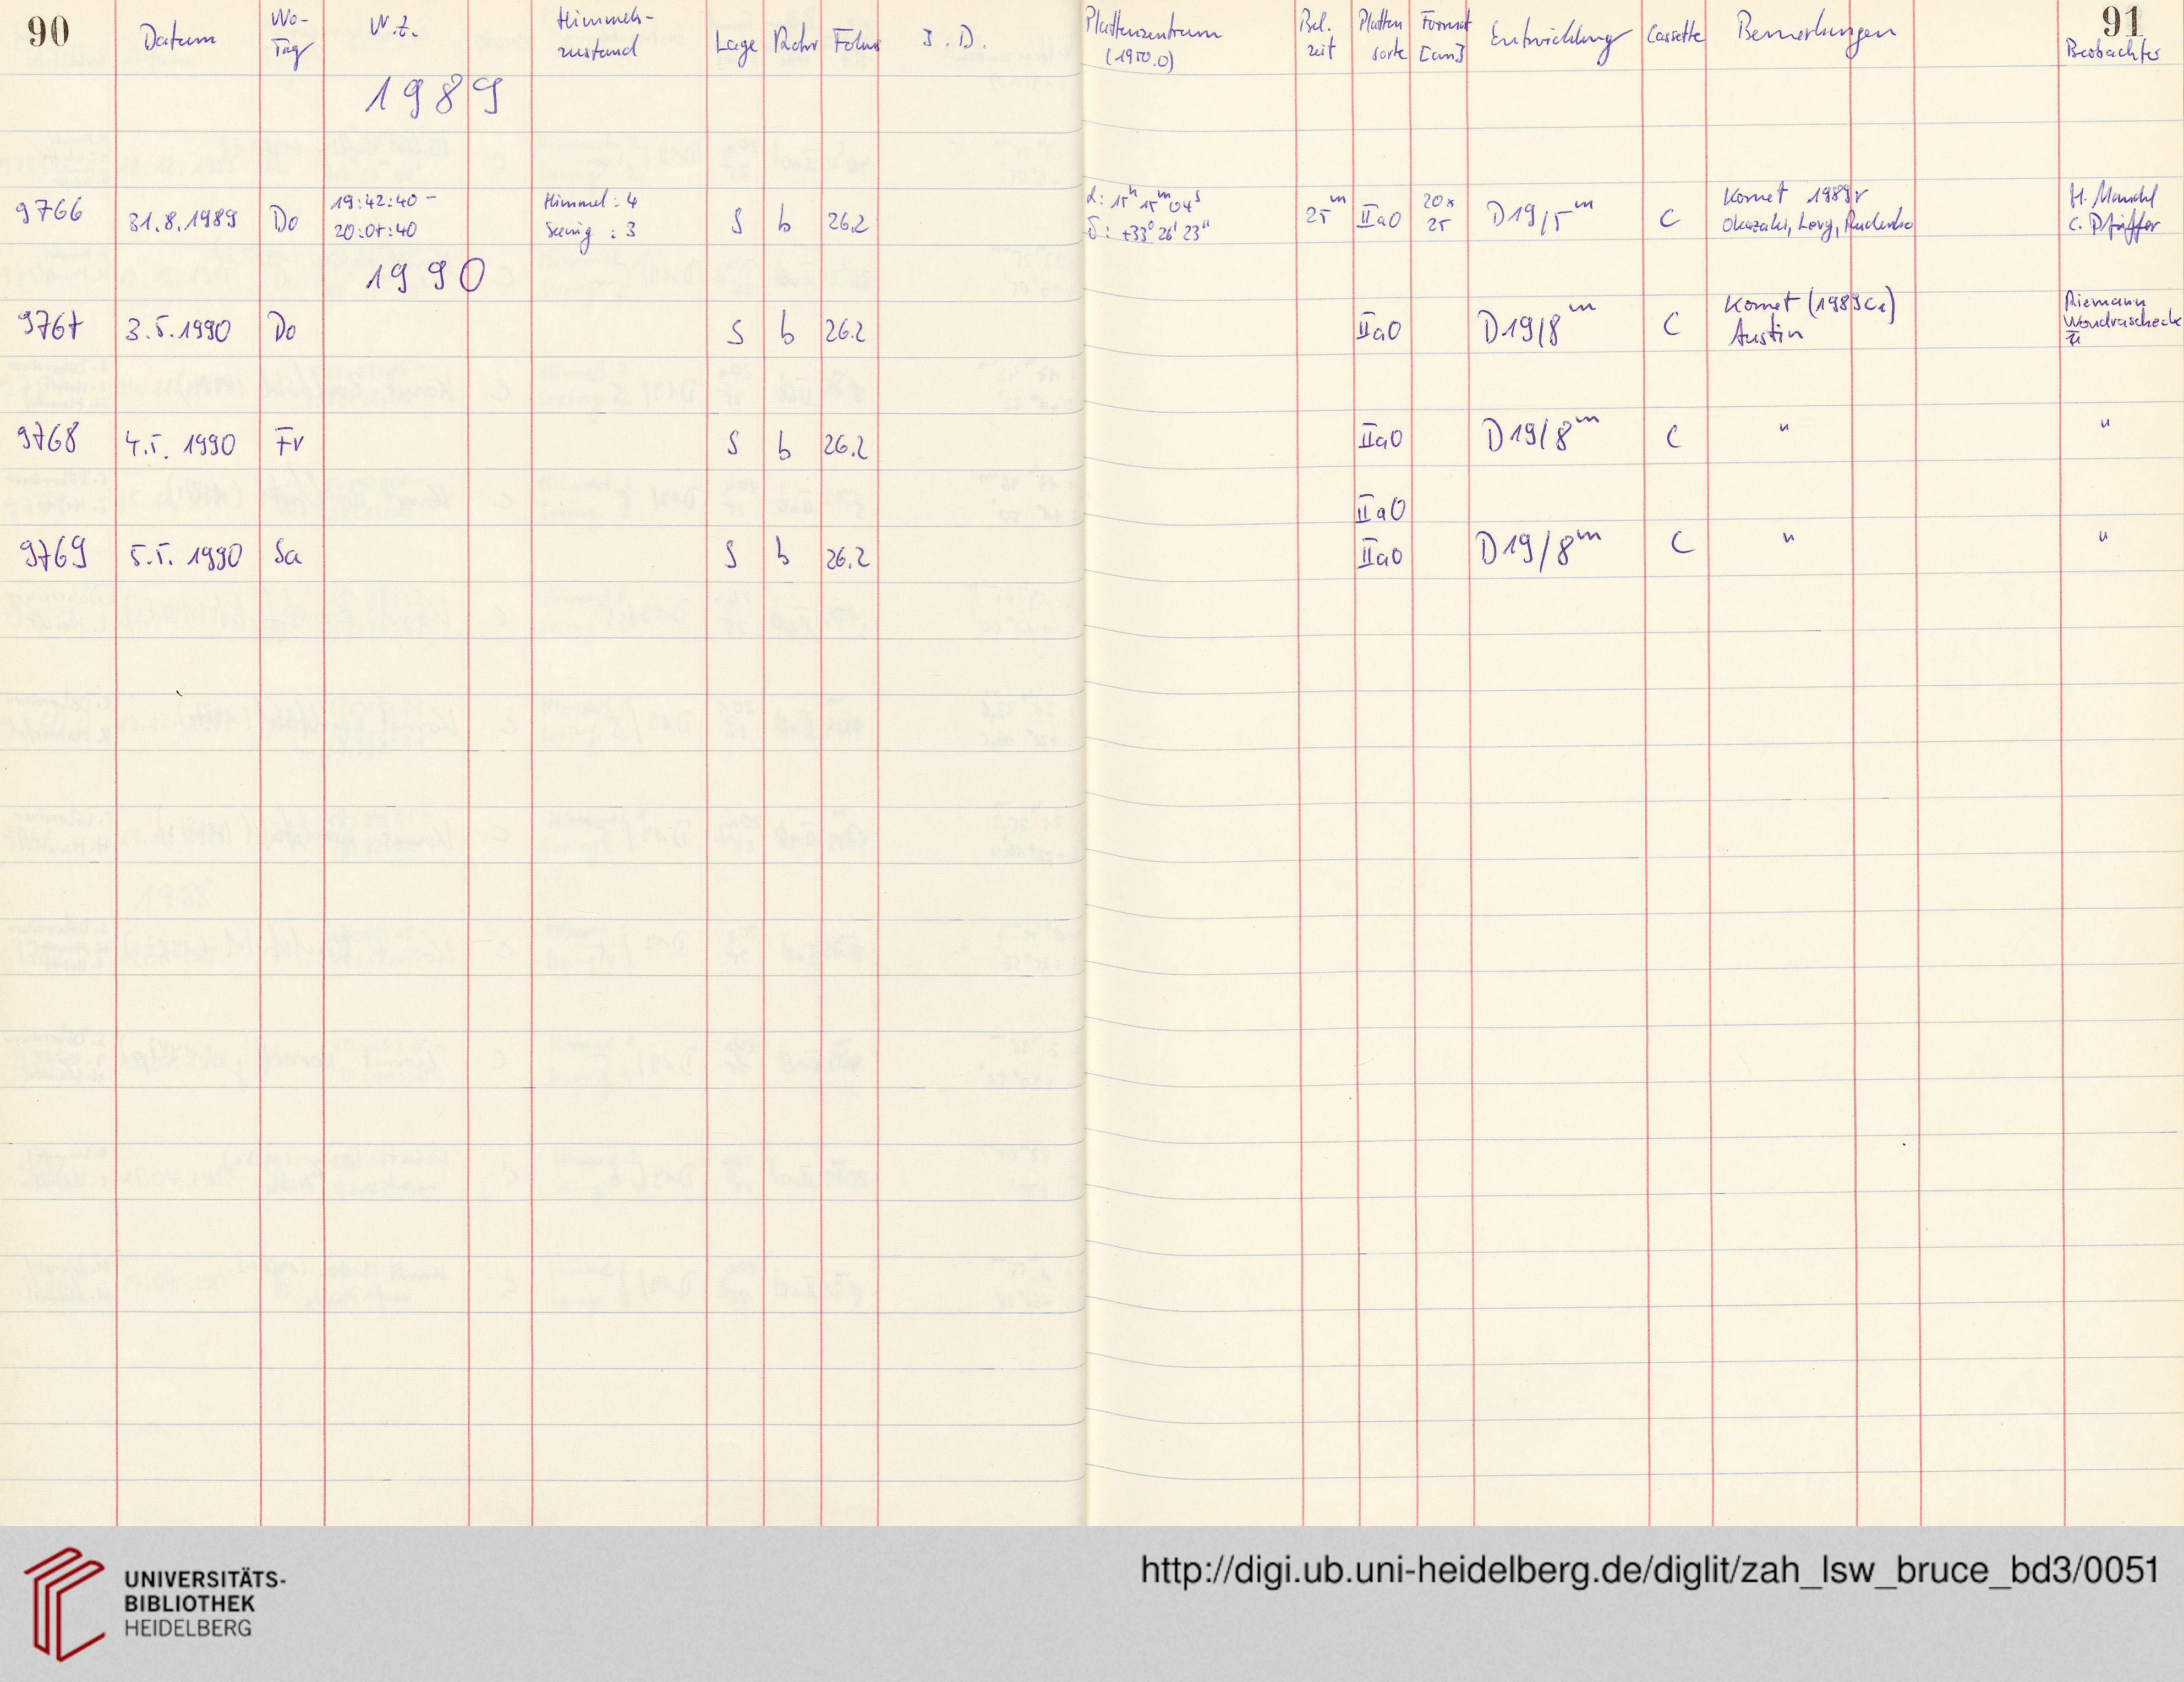 90 Datum Wo- Tag W.Z. Himmels- zustand Lage Rohr Fokus J.D. Plattenzentrum (1950.0) Bel. zeit Platten sorte Format [cm] Entwicklung Cassette Bemerkungen 91 Beobachter
1989
9766 31.8.1989 Do 19:42:40 - 20:07:40 Himmel: 4 Seeing: 3 S b 26.2 α: 15h 15m 04s δ: +33° 26' 23" 25m IIaO 20x 25 D19/5m C Komet 1989r Okazaki, Levy, Rudenko H. Mandel C. Pfeiffer
1990
9767 3.5.1990 Do S b 26.2 IIaO D19/8m C Komet (1989c1) Austin Riemann Wondrascheck
9768 4.5.1990 Fr S b 26.2 IIaO D19/8m C " "
IIaO
9769 5.5.1990 Sa S b 26.2 IIaO D19/8m C " "
UNIVERSITÄTS-
BIBLIOTHEK
HEIDELBERG
http://digi.ub.uni-heidelberg.de/diglit/zah_lsw_bruce_bd3/0051